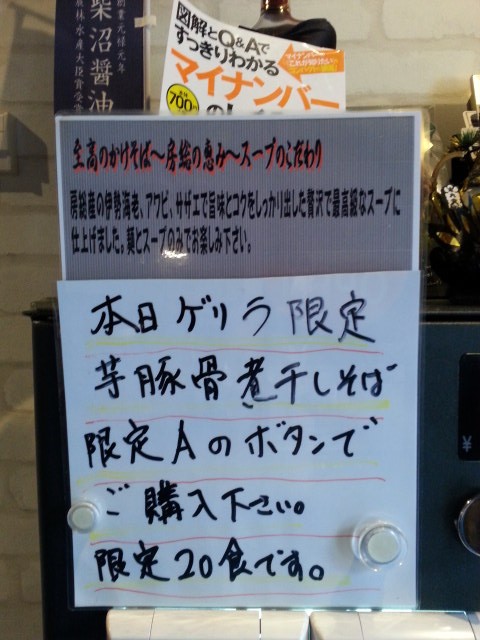 創業元禄元年
柴沼醤油
農林水産大臣賞受賞
図解とQ&Aで
すっきりわかる
マイナンバー
700
至高のかけそば〜房総の恵み〜スープのこだわり
房総産の伊勢海老、アワビ、サザエで旨味とコクをしっかり出した贅沢で最高級なスープに
仕上げました。麺とスープのみでお楽しみ下さい。
本日ゲリラ限定
芋豚骨煮干しそば
限定Aのボタンで
ご購入下さい。
限定20食です。
¥